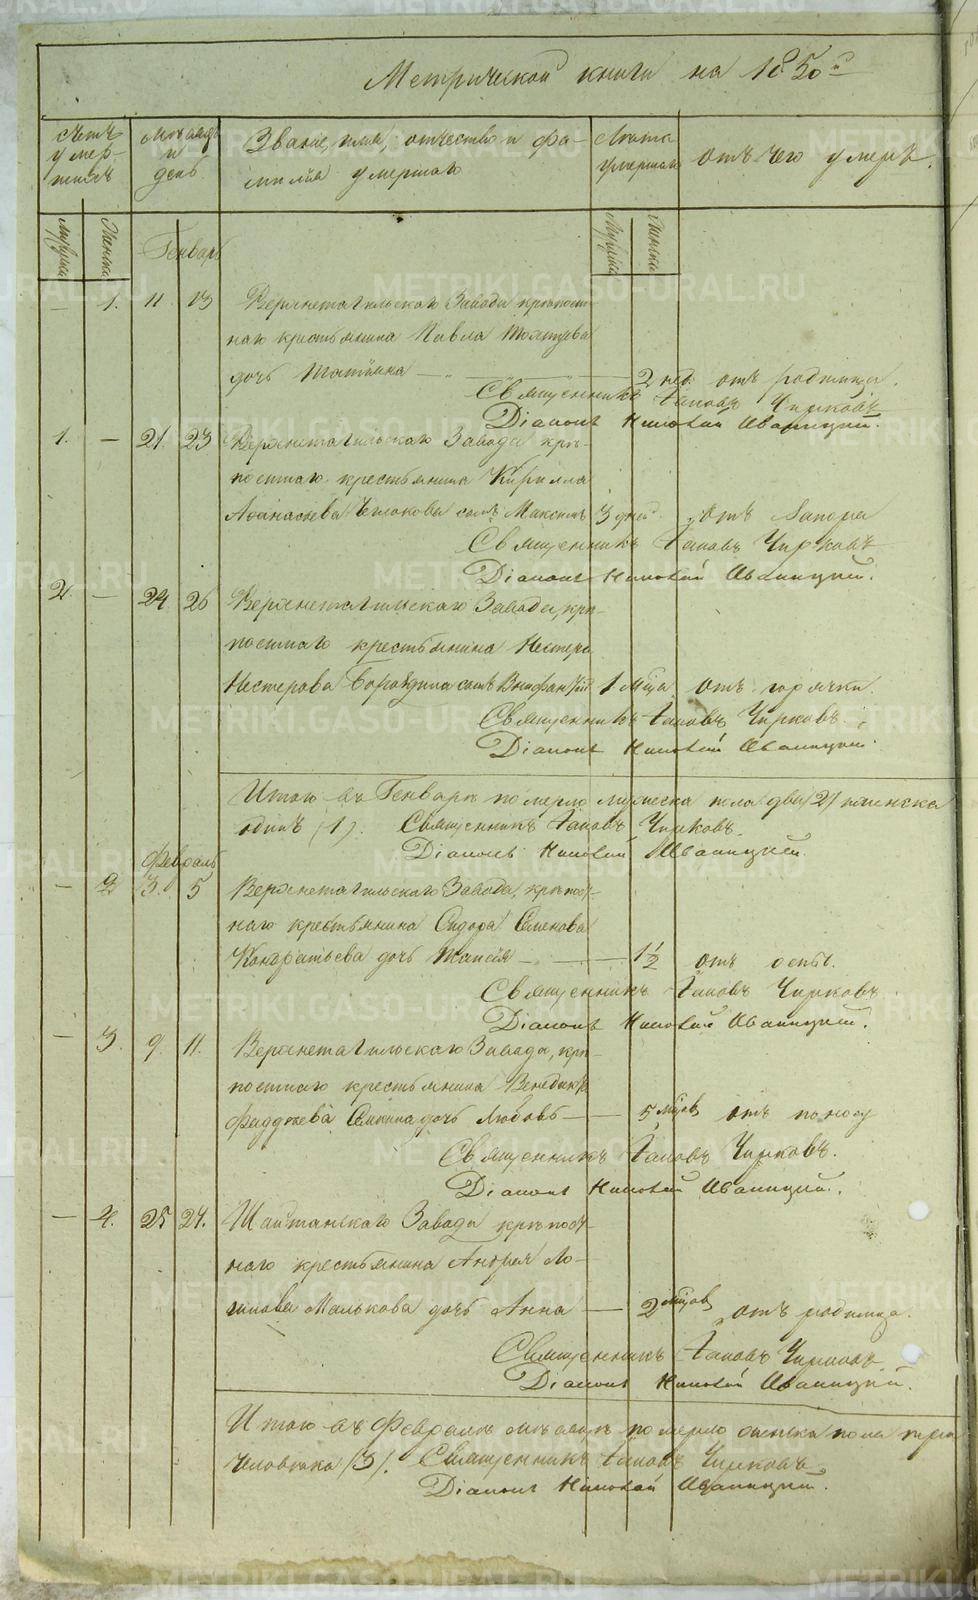 Метрической книги на 1850й
Счетъ умер-шихъ
Мѣсяцъ и день
Званіе, имя, отчество и фа-
милія умершаго
Лѣта умершаго
отъ чего умеръ.
Мужска Женска
Генварь
Мужска Женска
— 1. 11 13 Верхнетагильскаго Завода крѣпост-
наго крестьянина Павла
дочь Татіана — 2 нед: отъ родимца.
Священникъ Іаковъ Чирковъ
Діаконъ Николай Иваницкій.
1. — 21. 23 Верхнетагильскаго Завода крѣ-
постнаго крестьянина Кирилла
Афанасьева сынъ Максимъ 3 дней отъ
Священникъ Іаковъ Чирковъ
Діаконъ Николай Иваницкій.
2. — 24 26 Верхнетагильскаго Завода, крѣ-
постнаго крестьянина Нестера
Нестерова Бородина сынъ 1 мѣца отъ горячки.
Священникъ Іаковъ Чирковъ.
Діаконъ Николай Иваницкій.
Итого въ Генварѣ померло мужеска пола два /2/ женска
одинъ (1). Священникъ Іаковъ Чирковъ.
Діаконъ Николай Иваницкій.
Февраль
— 2. 3. 5 Верхнетагильскаго Завода, крѣпост-
наго крестьянина Сидора Семенова
Кондратьева дочь Таисія — 1½ отъ оспы.
Священникъ Іаковъ Чирковъ.
Діаконъ Николай Иваницкій.
— 3. 9. 11. Верхнетагильскаго Завода, крѣ-
постнаго крестьянина Венедикта
Фаддѣева дочь Любовь — 5 мѣцовъ отъ поносу
Священникъ Іаковъ Чирковъ.
Діаконъ Николай Иваницкій.
— 4. 25 27. Шайтанскаго Завода крѣпост-
наго крестьянина Андрея Ло-
гинова Малькова дочь Анна — 2 мѣцов отъ родимца.
Священникъ Іаковъ Чирковъ
Діаконъ Николай Иваницкій.
Итого въ Февралѣ мѣсяцѣ померло женска пола три
человѣка /3/. Священникъ Іаковъ Чирковъ
Діаконъ Николай Иваницкій.
METRIKI.GASO-URAL.RU